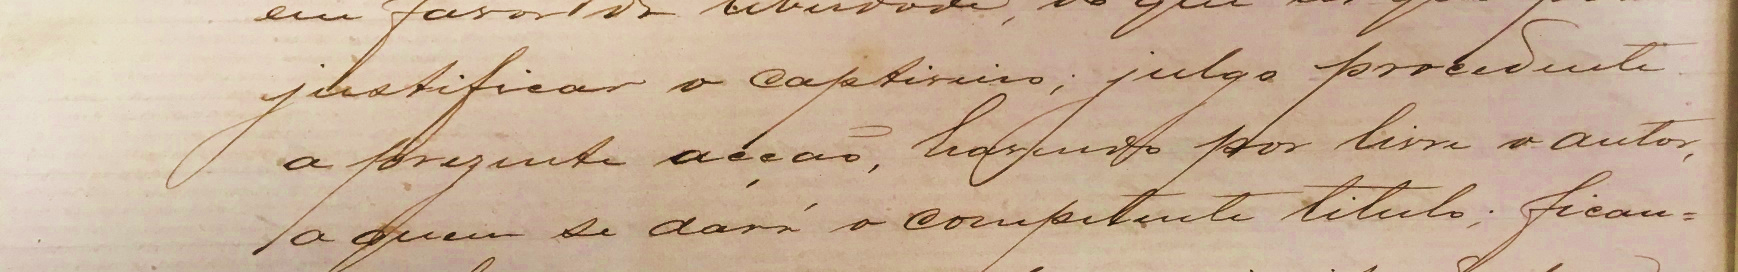 em favor da liberdade, do que
justificar o captiveiro; julgo procedente
a prezente acção, havendo por livre o autor,
a quem se dará o competente titulo; fican=